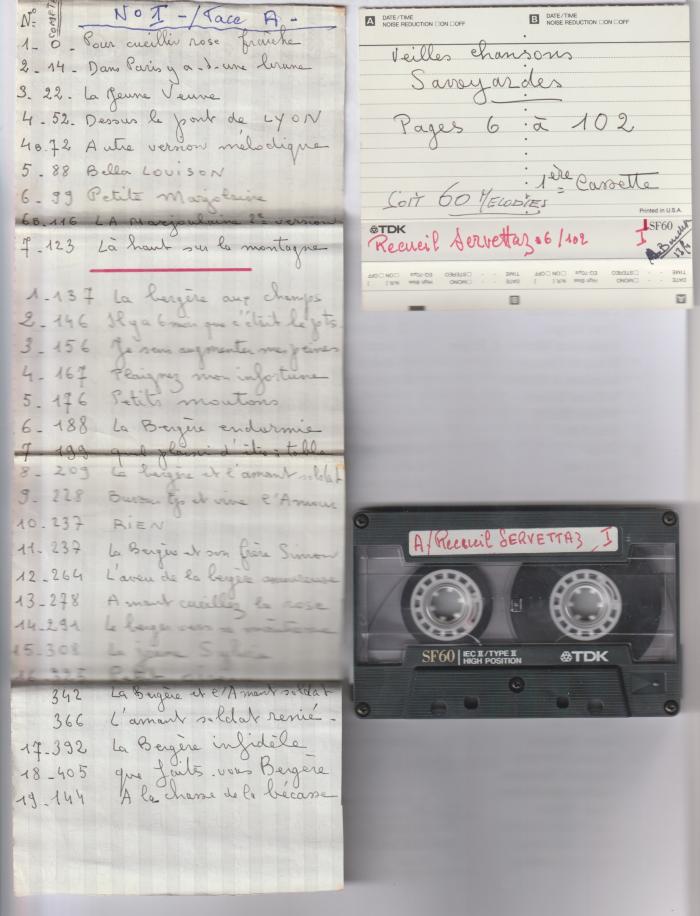 N°
COMPT
N° I -/Face A -
1- 0- Pour cueillir rose fraîche
2-14- Dans Paris y a-d-une brune
3. 22. La Jeune Veuve
4-52. Dessus le pont de LYON
4B.72 Autre version mélodique
5-88 Bella LOUISON
6-99 Petite Marjolaine
6B.116 LA Marjoulaine 2e version
7-123 Là haut sur la montagne
1-137 La bergère aux champs
2-146 Il y a 6 mois que c'était le
3-156 Je sens augmenter mes peines
4-167 Plaignez mon infortune
5-176 Petits moutons
6-188 La Bergère endormie
7-199 quel plaisir d'être à table
8-209 La bergère et l'amant soldat
9-228 Buvons et vive l'Amour
10-237 RIEN
11-237 La Bergère et son frère Simon
12-264 L'aveu de la bergère amoureuse
13-278 Amant cueillez la rose
14-291 Le berger
15-308 La jeune
16-325
342 La Bergère et l'Amant soldat
366 L'amant soldat renié-
17-392 La Bergère infidèle
18-405 que faits-vous Bergère
19-144 A la chasse de la bécasse
A DATE/TIME
NOISE REDUCTION □ON □OFF
B DATE/TIME
NOISE REDUCTION □ON □OFF
Veilles chansons
Savoyardes
Pages 6 à 102
1ère Cassette
SOIT 60 MELODIES
Printed in U.S.A.
TDK
SF60
Recueil Servettaz 6/102 I
A/Recueil SERVETTAZ I
SF60 IEC II/TYPE II
HIGH POSITION
TDK